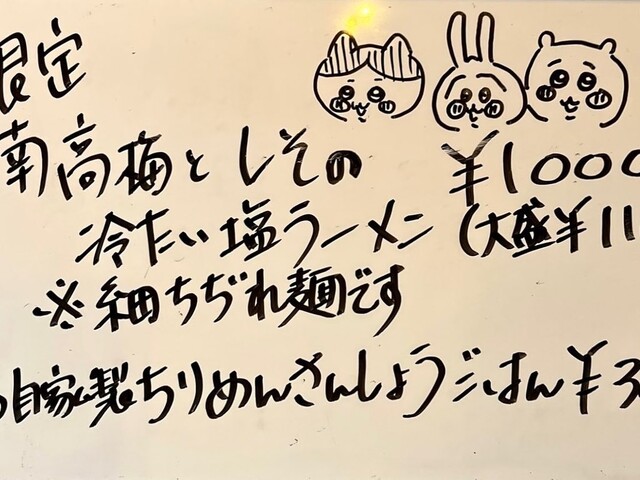 限定
南高梅としその ¥1000
冷たい塩ラーメン (大盛¥11
※細ちぢれ麺です
自家製ちりめんさんしょうごはん¥3